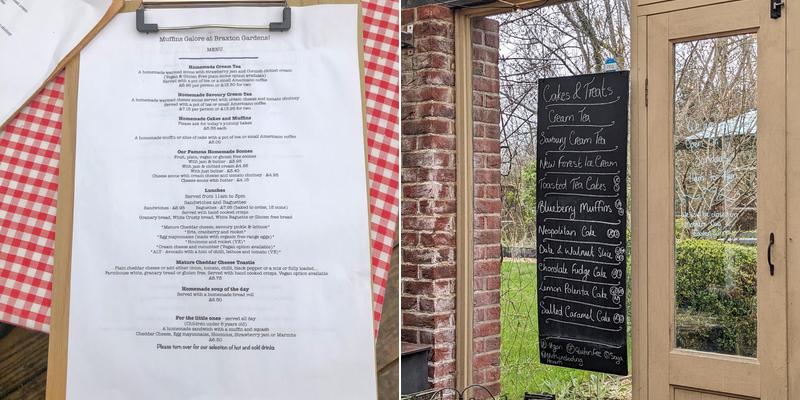 Muffins Galore at Braxton Gardens!
MENU
Homemade Cream Tea
A homemade warmed scone with strawberry jam and Cornish clotted cream
(Vegan & Gluten Free plain scone option available)
Served with a pot of tea or a small Americano coffee
Homemade Savoury Cream Tea
A homemade warmed cheese scone served with cream cheese and tomato chutney
Served with a pot of tea or small Americano coffee
Homemade Cakes and Muffins
Please ask for today's yummy bakes
£3.55 each
A homemade muffin or slice of cake with a pot of tea or small Americano coffee
£6.00
Our Famous Homemade Scones
Fruit, plain, vegan or gluten free scones
With jam & butter - £3.95
With jam & clotted cream £4.85
With just butter - £3.40
Cheese scone with cream cheese and tomato chutney - £4.95
Cheese scone with butter - £4.15
Lunches
Served from 11am to 3pm
Sandwiches and Baguettes
Sandwiches - £6.95 Baguettes - £7.95 (baked to order, 15 mins)
Served with hand cooked crisps
Granary bread, White Crusty bread, White Baguette or Gluten free bread
*Mature Cheddar cheese, savoury pickle & lettuce*
*Brie, cranberry and rocket*
*Egg mayonnaise (made with organic free range eggs)*
*Houmous and rocket (VE)*
*Cream cheese and cucumber (Vegan option available)*
*ALT - Avocado with a hint of chilli, lettuce and tomato (VE)*
Mature Cheddar Cheese Toastie
Plain cheddar cheese or add either onion, tomato, chilli, black pepper or a mix or fully loaded...
Farmhouse white, granary bread or gluten free. Served with hand cooked crisps. Vegan option available
£6.75
Homemade soup of the day
Served with a homemade bread roll
£6.50
For the little ones - served all day
(Children under 8 years old)
A homemade sandwich with a muffin and squash
Cheddar Cheese, Egg mayonnaise, Houmous, Strawberry jam or Marmite
£6.50
Please turn over for our selection of hot and cold drinks
Cakes & Treats
Cream Tea
Savoury Cream Tea
New Forest Ice Cream
Toasted Tea Cakes
Blueberry Muffins
Neapolitan Cake
Date & Walnut Slice
Chocolate Fudge Cake
Lemon Polenta Cake
Salted Caramel Cake
Vegan Gluten Free Soya